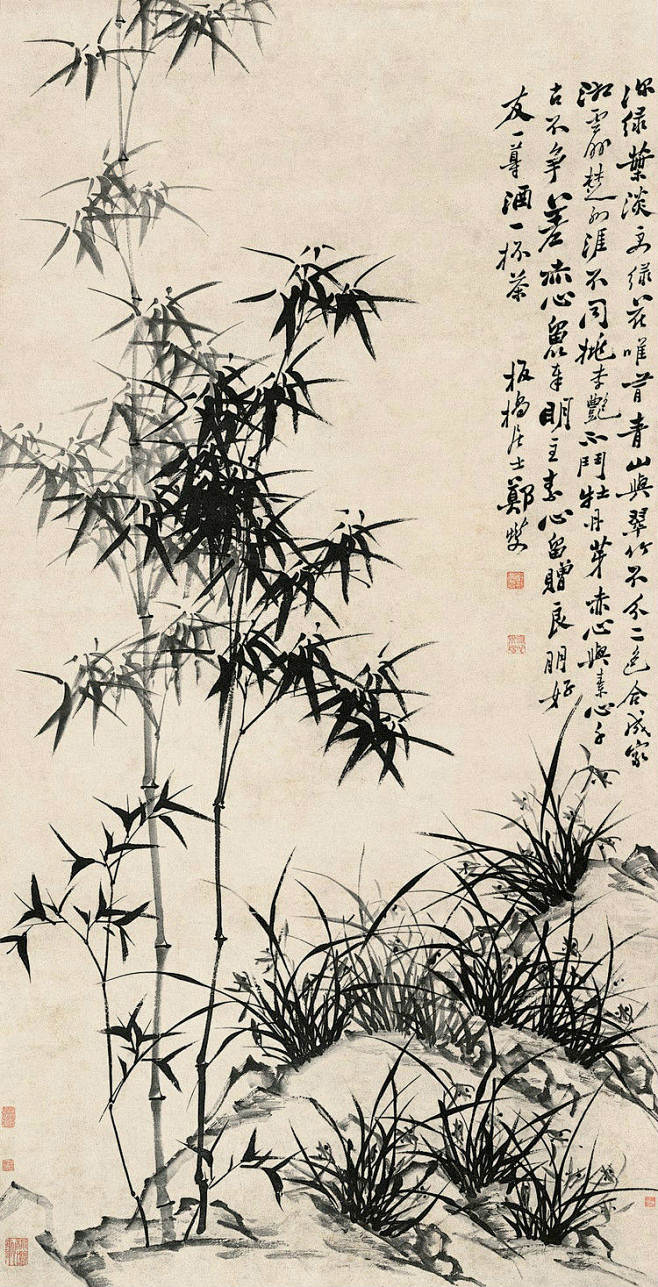 深綠葉淡綠花唯有青山與翠竹不分二色合成家
湘雲楚涯不同桃李艷不鬥牡丹芽赤心與素心千
古不爭差赤心留奉明主素心留贈良朋好
友一尊酒一杯茶 板橋居士鄭燮